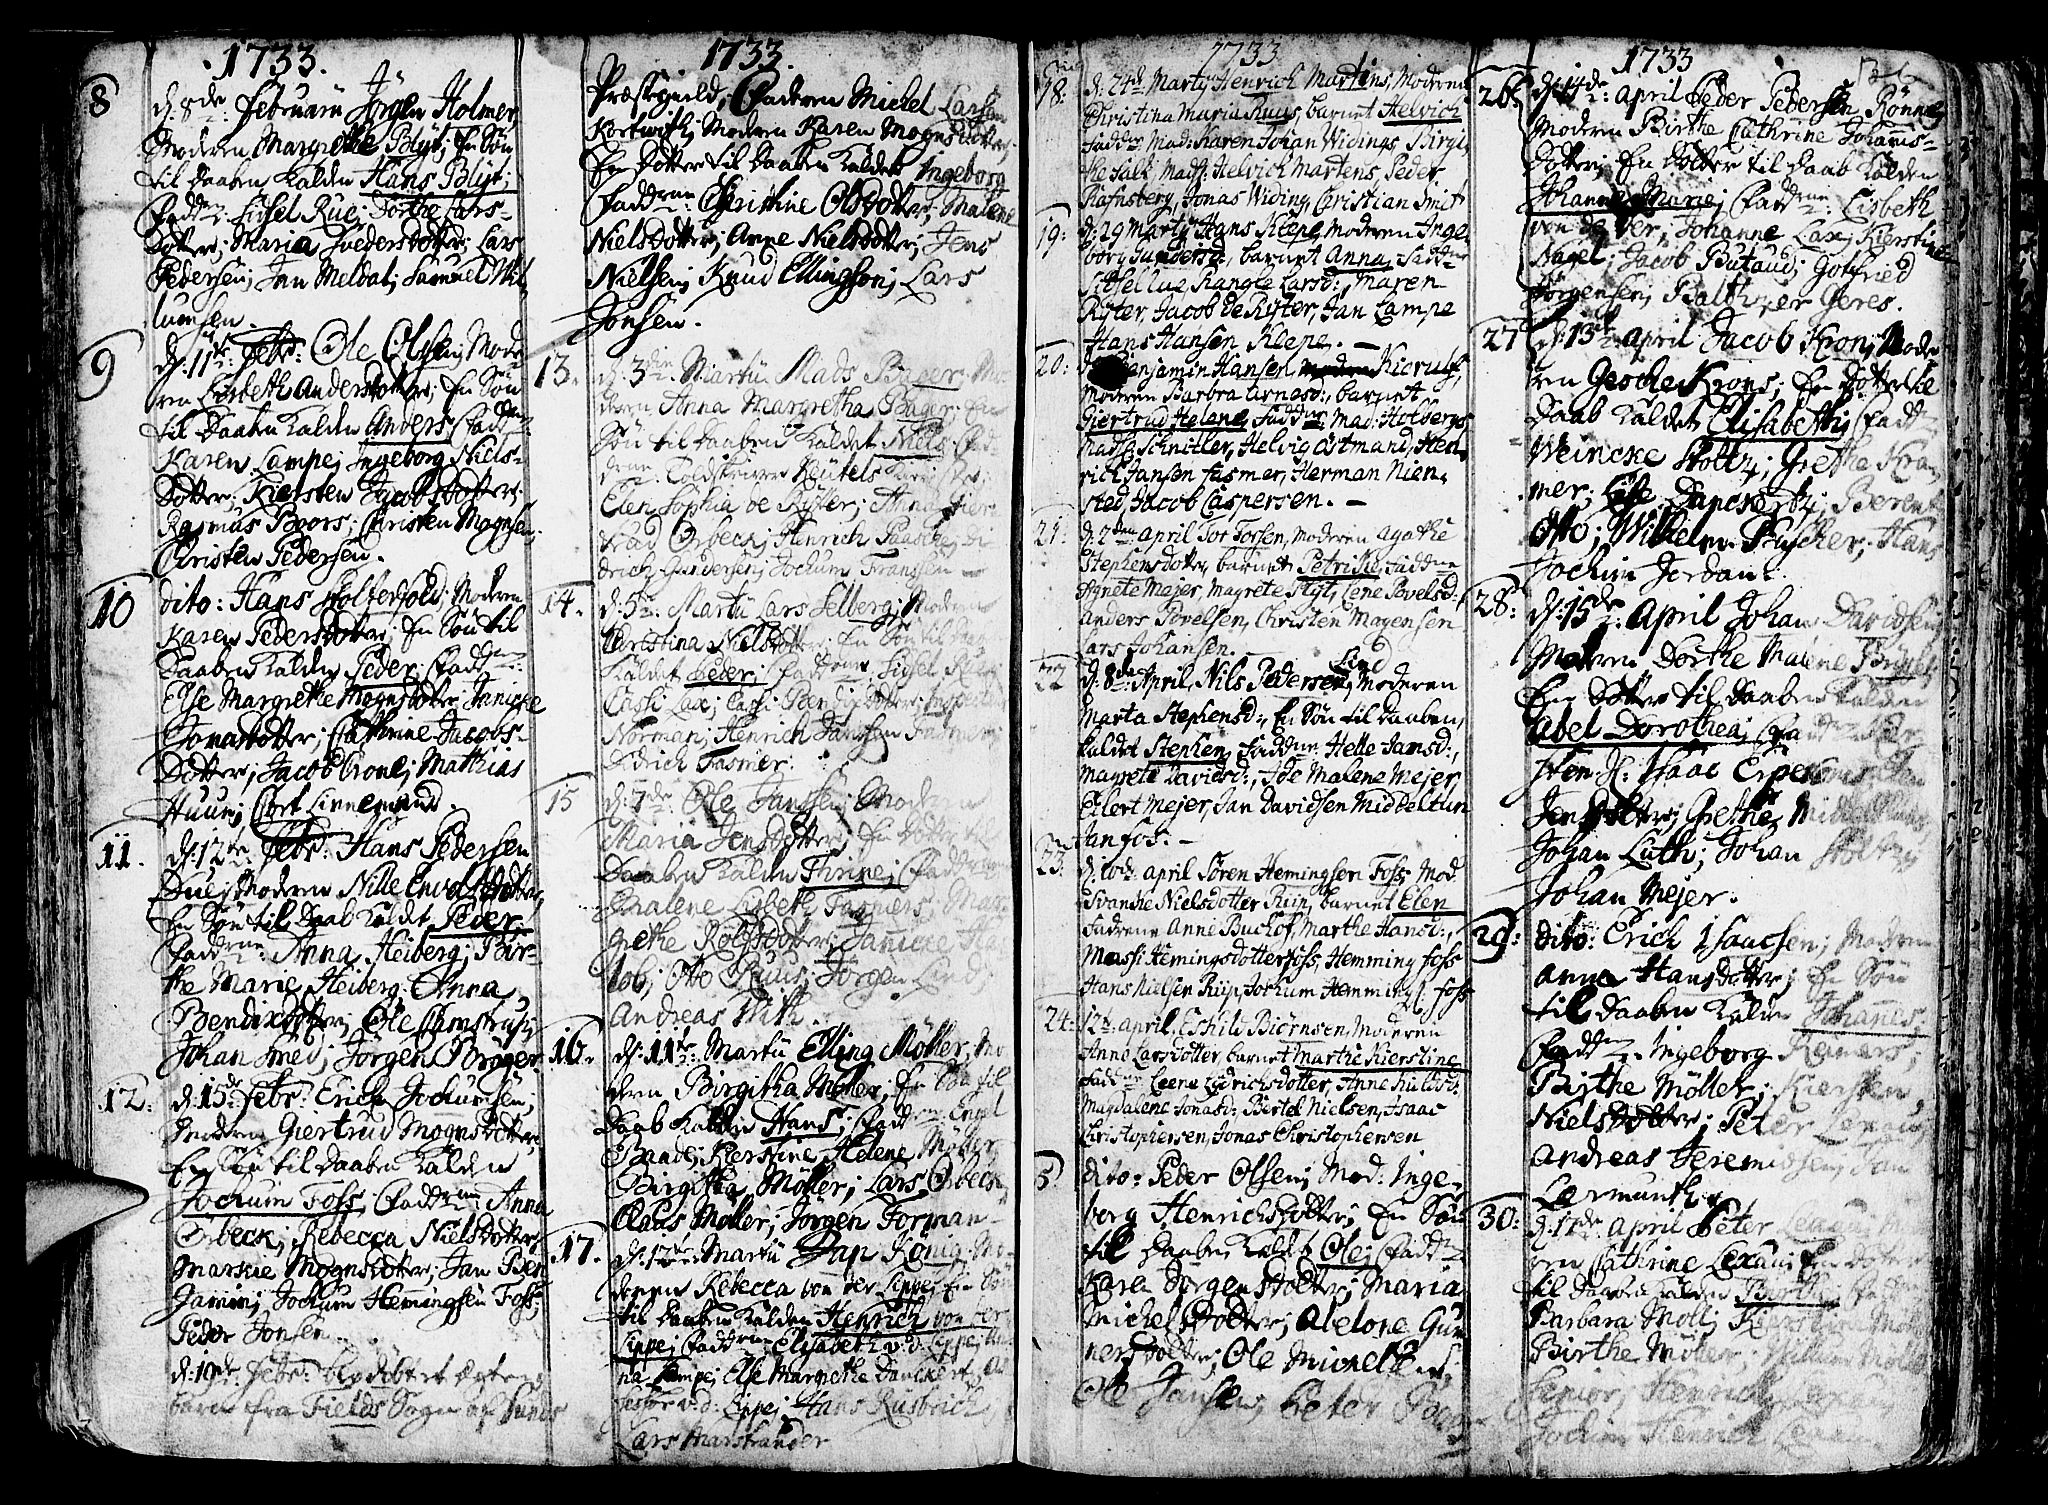 1733.
8
d: 8de: Februarii Jörgen Holmer,
Moderen Margrethe Blijt; En Sön
til Daaben Kalden Hans Blijt;
Fadd: Sidsel Rue; Dorthe Lars-
dotter; Maria Svedersdotter; Lars
Pedersen; Jan Meldal; Samuel Wil-
lumsen.
9
d: 11te: Febr: Ole Olsen; Mode-
ren Lisbeth Andersdotter, En Sön
til Daaben Kalden Anders, Fadd:
Karen Lampe; Ingeborg Niels-
dotter; Kiersten Jacobsdotter;
Rasmus Boors; Christen Mognsen
Christen Pedersen.
10
dito: Hans Holterfold; Moderen
Karen Pedersdotter; En Sön til
Daaben Kalden Peder; Fadd:
Else Margrethe Mognsdotter; Annicke
Jonasdotter; Cathrine Jacobs-
dotter; Jacob Crone; Mathias
Huus; Cort Linnemand.
11.
d: 12te: Febr: Hans Pedersen
Due; Moderen Nille Envoldsdotter,
En Sön til Daab Kaldet Peder
Faddrene: Anna Heiberg; Bir-
the Marie Heiberg; Anna
Bendixdotter; Ole
Johan Smed; Jörgen Bröger
12:
d: 15de: Febr: Erich Jochumsen;
Moderen Giertrud Mognsdotter,
En Sön til Daaben Kalden
Jochum Foss; Faddrene: Anna
Orbeck; Rebecca Nielsdotter,
Marie Mognsdotter; Jan Ben
jamin; Jochum Hemmingsen Foss;
Peder Jonsen.
Febr:
barn fra Fields Sogn af Sunds
1733.
Præstegield; Faderen Michel Larsen
Kortwith; Moderen Karen Mognsdotter;
En Dotter til Daaben Kaldet Ingeborg
Faddrene: Christine Olsdotter; Malene
Nielsdotter; Anne Nielsdotter; Jens
Nielsen; Knud Ellingson; Lars
Jonsen.
13.
d: 3die: Martii Mads Bager; Mo-
deren Anna Margretha Bager; En
Sön til Daaben Kaldet Niels; Fad-
drene:
Elen Sophia de Ryter; Anna Gier-
trud Orbeck; Henrich Paasche; Di
drich Gundersen; Jochum Fransen
14.
d: 5te: Martii Lars Selberg; Moderen
Christina Nielsdotter; En Sön til Daab
Kaldet Peder; Faddrene Sidsel
Lax; Bendixdotter; Inspecteur
Norman; Henrich Janssen Fasmer;
Didrich Fasmer.
15
d: 7de: Ole Janssen; Moderen
Maria Jensdotter; En Dotter til
Daaben Kalden Thrine; Faddrene
Malene Lisbeth Fasmers; Mar-
grethe Rolfsdotter; Janicke
Otto Ruus; Jörgen
Andreas With.
16.
d: 11te: Martii Elling Möller; Mo
deren Birgitha Möller; En Sön til
Daab Kalden Hans; Faddrene: Engel
Baade; Kierstine Helene Möller
Birgitha Möller; Lars Orbeck
Claus Möller; Jörgen Forman-
17.
d: 12te: Martii Jan König; Mo-
deren Rebecca von der Lippe; En Sön
til Daaben Kalden Henrich von der
Lippe; Faddrene: Elisabeth v: d: Lippe; An
na Lampe; Else Margrethe Danckert;
v: d: Lippe; Hans Rusbrich,
Lars Marstrander
1733
18.
d: 24de Marty Henrich Martins, Moderen
Christina Maria Ruus, barnet Helvich
Fadd: Mad: Karen Johan Widings, Birgi-
the Falk, Mads: Helvich Martens, Peder
Rafnsberg, Jonas Widing, Christian Smit
19:
d: 29 Marty Hans Kiepe, moderen Inge-
borg Gundersd:, barnet Anna, Fadd:
Sidsel Lux, Rangle Larsd:, Maren
Ryter, Jacob de Ryter, Jan Lampe
Hans Hansen Kiepe. —
20:
Benjamin Hansen Kierulf,
Moderen Barbra Arnesd:, barnet
Giertrud Helene, Fadd: Mad: Holbergs
Mads: Schnitler, Helvig Östmand, Hen
rich Jansen Fasmer, Herman Nien-
sted, Jacob Caspersen. —
21:
d: 2den april Tor Torsen, moderen agathe
Stephensdotter, barnet Petrike, Fadd:
Agnete Mejer, magrete Stigt, Lene Povelsd:
Anders Povelsen, Christen Magensen
Lars Johansen.
22
d: 8de: April, Nils Pedersen Lind, moderen
Marta Stephensd:, En Sön til Daaben,
Kaldet Stephen, Fadd: Helle Jansd:,
Magrete Davidsd:, Ide Malene Mejer
Eilert Mejer, Jan Davidsen Middeltun
Jan Fos. —
23:
d: 10de april Sören Hemingsen Foss, Mod:
Svanche Nielsdotter Riip, barnet Elen
Fadrene Anne Buchof, Marthe Hansd:,
Mussi Hemingsdotter Foss, Hemming Foss
Hans Nielsen Riip, Jochum Hemmings: Foss
24:
12te april, Eskild Biörnsen, Moderen
Anne Larsdotter, barnet Marthe Kierstine
Fadd: Leene Lydrichsdotter, Anne Rulufsd:
Magdalene Jonasd: Bertel Nielsen, Isaac
Christophersen, Jonas Christophersen
5
dito: Peder Olsen; Mod: Inge-
borg Henrichsdotter; En Sön
til Daaben Kaldet Ole; Fadd:
Karen Jörgensdotter; Maria
Michelsdotter; Abelone Gun
nersdotter; Ole Michelsen;
Ole Jansen; Peter
1733
26
d: 14de: April Peder Pedersen Rönne,
Moderen Birthe Cathrine Johanns-
dotter; En Dotter til Daab Kalden
Johanne Marie; Fadd: Lisbeth
von der Ver; Johanne Lax; Kierstine
Nagel; Jacob Butaud; Gotfried
Jörgensen; Balthzer Geres.
27
d: 13de: April Jacob Kron; Mode-
ren Gesche Krons; En Dotter til
Daab Kaldet Elisabeth; Fadd:
Weincke Stoltz; Grethe Kra
mer; Danckertz; Berent
Otto; Wilhelm Fischer; Hans
Jochim Jordan.
28:
d: 15de: April Johan Davidsen
Moderen Dorthe Malene
En Dotter til Daaben Kalden
Abel Dorothea; Fadd:
Isaac
Jensdotter; Grethe Middelthun,
Johan Luth; Johan Stoltz
Johan Mejer.
29:
dito: Erich Isaacsen; Moderen
Anna Hansdotter; En Sön
til Daaben Kalden Johanes
Fadd: Ingeborg
Birthe Möller; Kiersten
Nielsdotter; Peter Lexau
Andreas Jeremidsen; Jan
Lermunth
30:
d: 17de: April Peter Lexau; Mo-
ren Cathrine Lexau; En Dotter
til Daaben Kalden Birthe
Barbara Moll;
Birthe Möller; Willum Möller
Senior; Henrich Lexau
Jochim Henrich Lexau